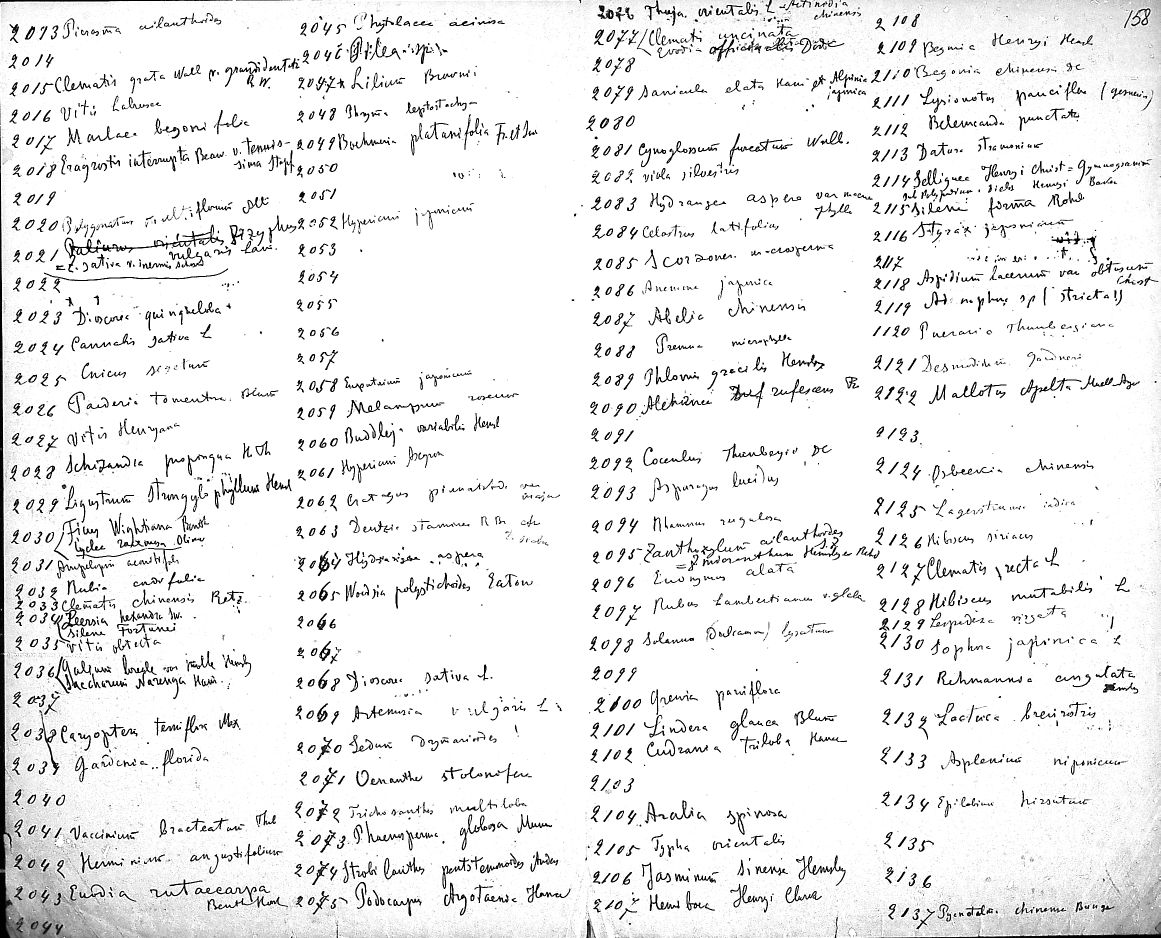 158
2013 Picrasma ailanthoides
2014
2015 Clematis grata Wall v. grandidentata
R W.
2016 Vitis Labrusca
2017 Marlaea begonifolia
2018 Eragrostis interrupta Beauv. v. tenuis-
sima Stapf
2019
2020 Polygonatum multiflorum All
2021 Paliurus orientalis Zizyphus
vulgaris Lam.
= Z. sativa v. inermis
2022
2023 Dioscorea quinqueloba
2024 Cannabis sativa L
2025 Cnicus segetum
2026 Paederia tomentosa Blum
2027 Vitis Henryana
2028 Schizandra propinqua H Th
2029 Ligustrum Strongylophyllum Hemsl
2030 Ficus Wightiana Benth
racemosa Oliv
2031 Ampelopsis aconitifolia
2032 Rubia cordifolia
2033 Clematis chinensis Retz
2034 Leersia hexandra Sw.
Silene Fortunei
2035 Vitis obtecta
2036 Galium Hemsley
Saccharum Narenga Ham.
2037
2038 Caryopteris terniflora Max
2039 Gardenia florida
2040
2041 Vaccinium bracteatum Thb
2042 Herminium angustifolium
2043 Euodia rutaecarpa
Benth Hook
2044
2045 Phytolacca acinosa
2046 Pilea sp
2047 Lilium Brownii
2048 Phryma leptostachya
2049 Boehmeria platanifolia Fr et Sav
2050
2051
2052 Hypericum japonicum
2053
2054
2055
2056
2057
2058 Eupatorium japonicum
2059 Melampyrum roseum
2060 Buddleja variabilis Hemsl
2061 Hypericum Ascyron
2062 Crataegus pinnatifida var
major
2063 Deutzia staminea R Br
2064 Hydrangea aspera
2065 Woodsia polystichoides Eaton
2066
2067
2068 Dioscorea sativa L.
2069 Artemisia vulgaris L
2070 Sedum drymarioides
2071 Oenanthe stolonifera
2072 Trichosanthes multiloba
2073 Phaenosperma globosa Munro
2074 Strobilanthes pentstemonoides Anders
2075 Podocarpus Argotaenia Hance
2076 Thuja orientalis L Actinidia
chinensis
2077 Clematis uncinata
Evodia officinalis Dode
2078
2079 Sanicula elata Ham et Alpinia
japonica
2080
2081 Cynoglossum furcatum Wall.
2082 Viola silvestris
2083 Hydrangea aspera var macro
phylla
2084 Celastrus latifolius
2085 Scorzonera macrosperma
2086 Anemone japonica
2087 Abelia chinensis
2088 Premna microphylla
2089 Phlomis gracilis Hemsley
2090 rufescens Fr
2091
2092 Cocculus Thunbergii DC
2093 Asparagus lucidus
2094 Rhamnus rugulosa
2095 Zanthoxylum ailanthoides S.Z
= Z micranthum Hemsley
2096 Evonymus alata
2097 Rubus Lambertianus v. glaber
2098 Solanum (Dulcamara) lyratum
2099
2100 Grewia parviflora
2101 Lindera glauca Blum
2102 Cudrania triloba Hance
2103
2104 Aralia spinosa
2105 Typha orientalis
2106 Jasminum sinense Hemsley
2107 Hemiboea Henryi Clarke
2108
2109 Begonia Henryi Hemsl
2110 Begonia chinensis DC
2111 Lysionotus pauciflora
2112 Belemcanda punctata
2113 Datura stramonium
2114 Selliguea Henryi Christ = Gymnogramme
Polypodium Diels Henryi Baker
2115 Silene firma Rohrb
2116 Styrax japonicum
2117
2118 Aspidium lacerum var obtusum
Christ
2119 sp (stricta!)
1120 Pueraria Thunbergiana
2121 Desmodium Gardneri
2122 Mallotus Apelta Muell Arg
2123.
2124 Osbeckia chinensis
2125 Lagerstroemia indica
2126 Hibiscus siriacus
2127 Clematis recta L
2128 Hibiscus mutabilis L
2129 Lespedeza virgata
2130 Sophora japonica L
2131 Rehmannia angulata
Hemsley
2132 Lactuca brevirostris
2133 Asplenium niponicum
2134 Epilobium hirsutum
2135
2136
2137 chinense Bunge